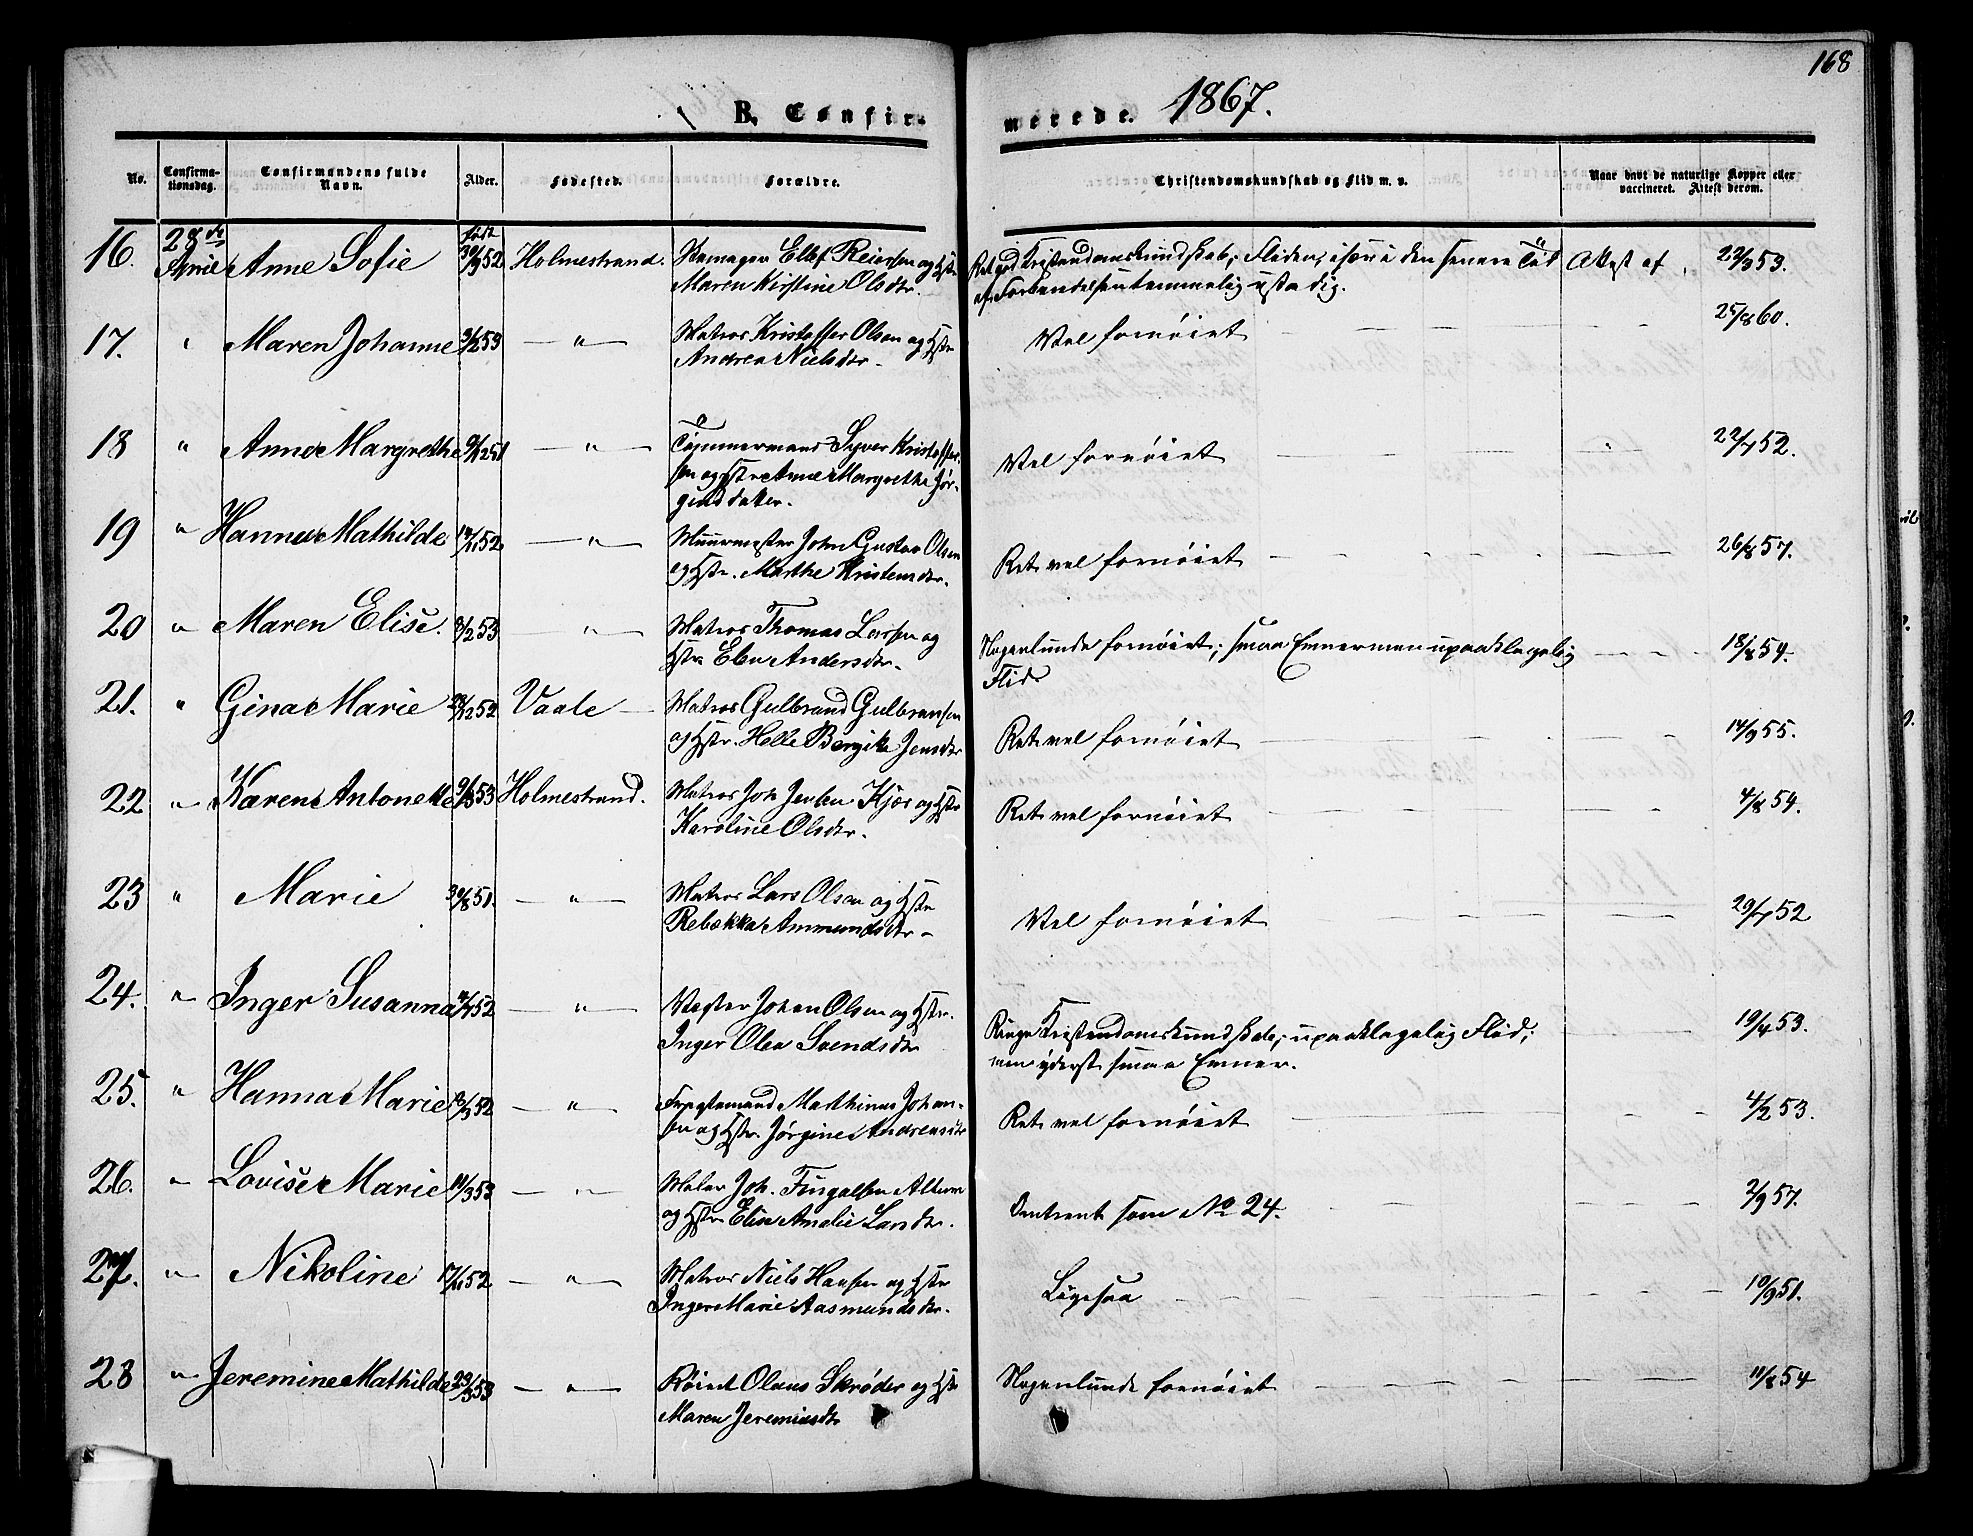 168
B. Confir-
merede. 1867.
No.
Confirma-
tionsdag.
Confirmandens fulde
Navn.
Alder.
Fødested.
Forældre.
Christendomskundskab og Flid m. v.
Naar havt de naturlige Kopper eller
vaccineret. Attest derom.
16. 28de Anne Sofie født 30/9 52 Holmestrand. Ellef Reiersen og Hstr
Maren Kirstine Olsdtr.
Ret god Kristendomskundskab; Fliden, især i den senere Tid
af Forberedelsen temmelig ustadig.
Attest af 22/3 53.
17. " Maren Johanne 53 — " — Matros Kristoffer Olsen og Hstr
Andrea Nielsdtr.
Vel fornøiet 25/8 60.
18 " Anne Margrethe 51 — " — Tømmermand Syver Kristoffer-
sen og Hstr Anne Margrethe Jør-
gensdatter.
Vel fornøiet " 22/7 52.
19 " Hanne Mathilde 52 — " — Muurmester John Gustav Olsen
og Hstr. Marthe Kristensdtr.
Ret vel fornøiet 26/8 57.
20 " Maren Elise. 8/2 53 — " — Matros Thomas Larsen og
Hstr Elen Andersdtr.
Nogenlunde fornøiet; smaa Evner men upaaklagelig
Flid
18/8 54.
21. " Gina Marie 52 Vaale — Matros Gulbrand Gulbransen
og Hstr. Helle Bergite Jensdtr
Ret vel fornøiet 14/9 55.
22 " Karen Antonette 53 Holmestrand. Matros Joh Jensen Kjær og Hstr
Karoline Olsdtr.
Ret vel fornøiet 4/8 54.
23 " Marie 51. — " — Matros Lars Olsen og Hstr
Rebekka Ammundsdtr.
Vel fornøiet 29/7 52
24. " Inger Susanna 52 — " — Vægter Johan Olsen og Hstr.
Inger Olea Svendsdtr
Ringe Kristendomskundskab; upaaklagelig Flid;
men yderst smaa Evner.
19/4 53.
25. " Hanna Marie 52 — " — Mathinus Johan-
sen og Hstr Jørgine Andreasdtr
Ret vel fornøiet 4/2 53.
26. " Lovise Marie 11/3 53 — " — Maler Joh. Fingalsen
og Hstr Elise Amalie Larsdtr.
Omtrent som No 24. 2/9 57.
27. " Nikoline 17/11 52 — " — Matros Niels Hansen og Hstr
Inger Marie Aasmundsdtr.
Ligesaa 10/9 51.
28 " Jeremine Mathilde 23/3 53 — " — Olaus Skrøder og Hstr
Maren Jeremiasdtr
Nogenlunde fornøiet 11/8 54